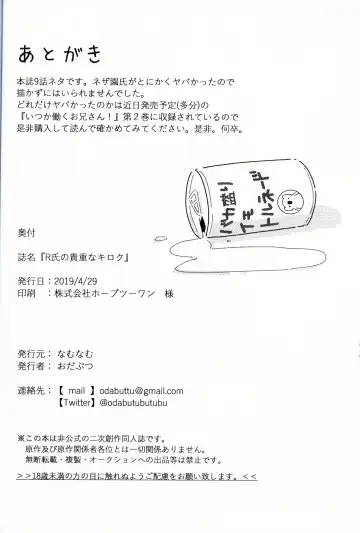 あとがき
本誌9話ネタです。ネザ園氏がとにかくヤバかったので
描かずにはいられませんでした。
どれだけヤバかったのかは近日発売予定(多分)の
『いつか働くお兄さん!』第2巻に収録されているので
是非購入して読んで確かめてみてください。是非。何卒。
奥付
誌名『R氏の貴重なキロク』
発行日：2019/4/29
印刷　：株式会社ホープツーワン　様
発行元：なむなむ
発行者：おだぶつ
連絡先：【 mail 】odabuttu@gmail.com
【Twitter】@odabutubutubu
※この本は非公式の二次創作同人誌です。
原作及び原作関係者各位とは一切関係ありません。
無断転載・複製・オークションへの出品等は禁止です。
>>18歳未満の方の目に触れぬようご配慮をお願い致します。<<